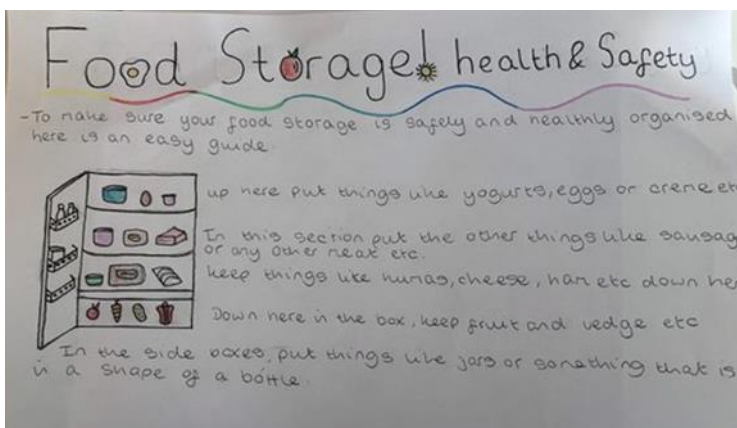 Food Storage! health & Safety
-To make sure your food storage is safely and healthly organised
here is an easy guide.
up here put things like yogurts, eggs or creme et
In this section put the other things like sausag
or any other meat etc.
keep things like humas, cheese, ham etc down he
Down here in the box, keep fruit and vedge etc
In the side boxes, put things like jars or something that is
in a shape of a bottle.